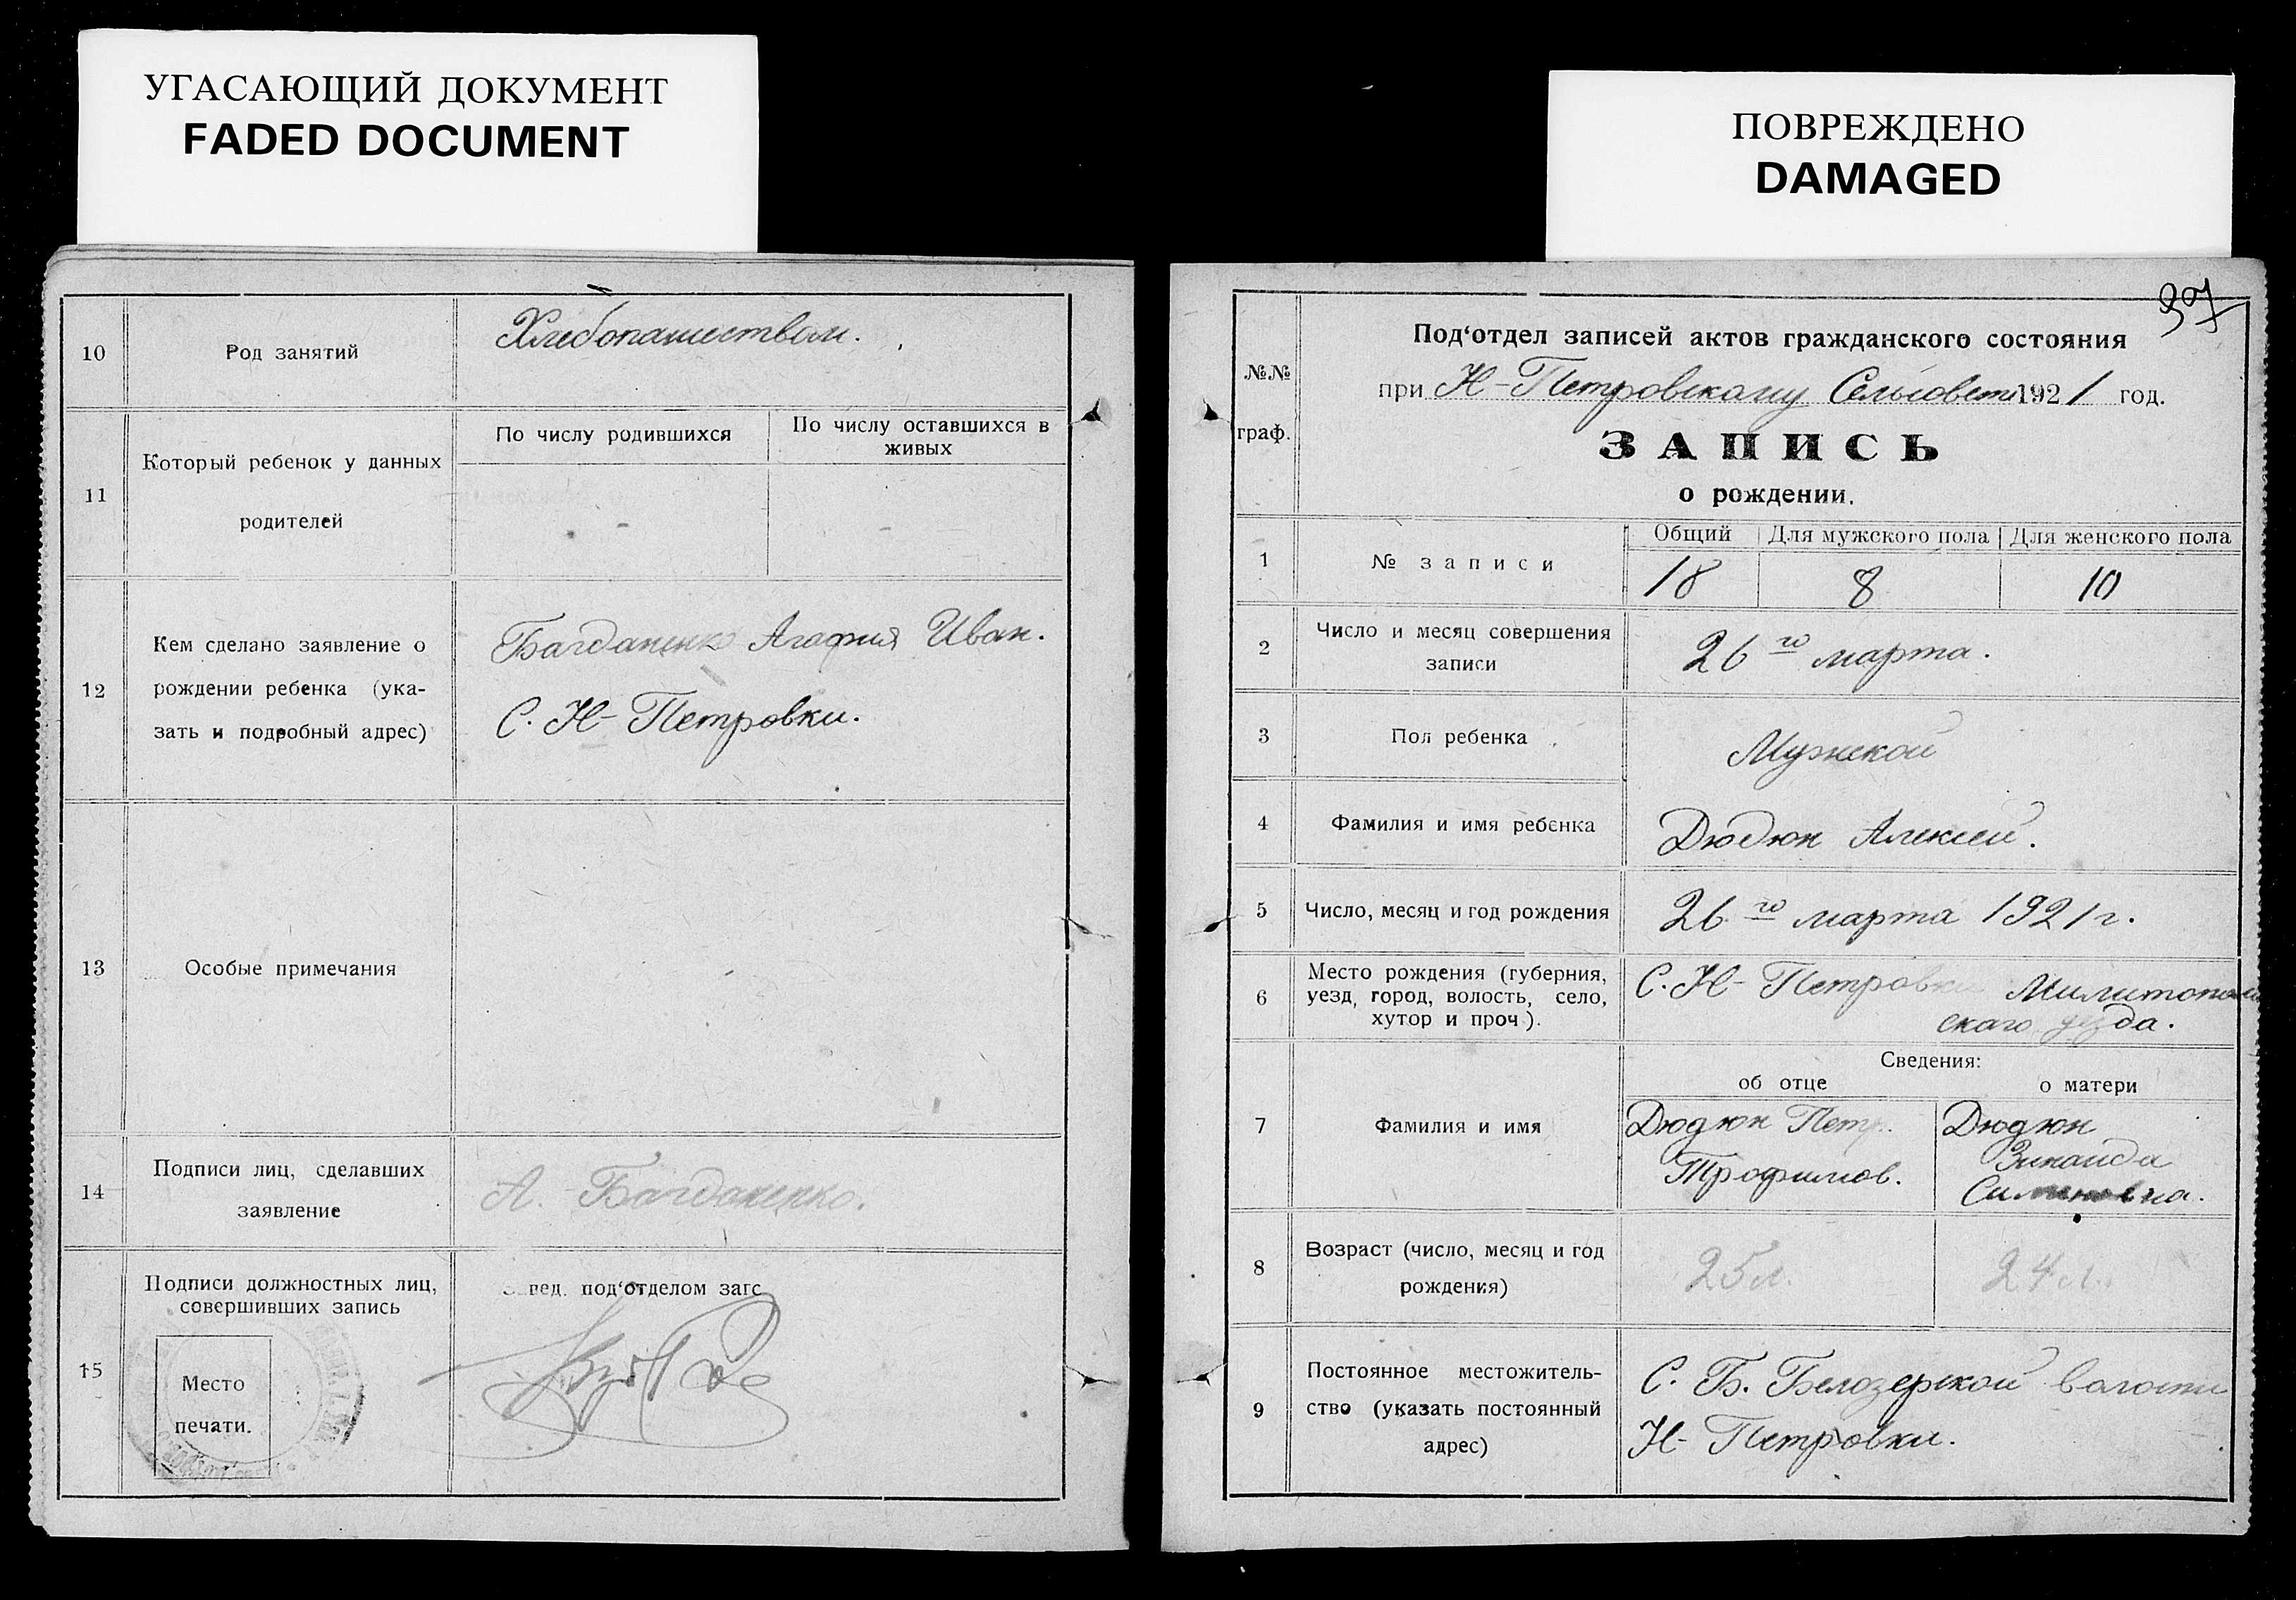 УГАСАЮЩИЙ ДОКУМЕНТ
FADED DOCUMENT
10
Род занятий
Хлебопашеством.
11
Который ребенок у данных
родителей
По числу родившихся
По числу оставшихся в
живых
-
-
12
Кем сделано заявление о
рождении ребенка (ука-
зать и подробный адрес)
Багданенко Агафия Иван.
С. Н-Петровки.
13
Особые примечания
14
Подписи лиц, сделавших
заявление
А. Багданенко.
15
Подписи должностных лиц,
совершивших запись
Место
печати.
вед. под‘отделом загс
ПОВРЕЖДЕНО
DAMAGED
307
№№
граф.
Под‘отдел записей актов гражданского состояния
при Н-Петровскому Сельсовете 1921 год.
ЗАПИСЬ
о рождении.
1
№ записи
Общий
Для мужского пола
Для женского пола
18
8
10
2
Число и месяц совершения
записи
26го марта.
3
Пол ребенка
Мужской
4
Фамилия и имя ребенка
Дюдюн Алексей.
5
Число, месяц и год рождения
26го марта 1921 г.
6
Место рождения (губерния,
уезд, город, волость, село,
хутор и проч).
С. Н-Петровки Милитополь
скаго уезда.
Сведения:
об отце
о матери
7
Фамилия и имя
Дюдюн Петр.
Трофимов.
Дюдюн
Зинаида
Симиновна.
8
Возраст (число, месяц и год
рождения)
25 л.
24 л.
9
Постоянное местожитель-
ство (указать постоянный
адрес)
С. Б. Белозерской волости
Н-Петровки.